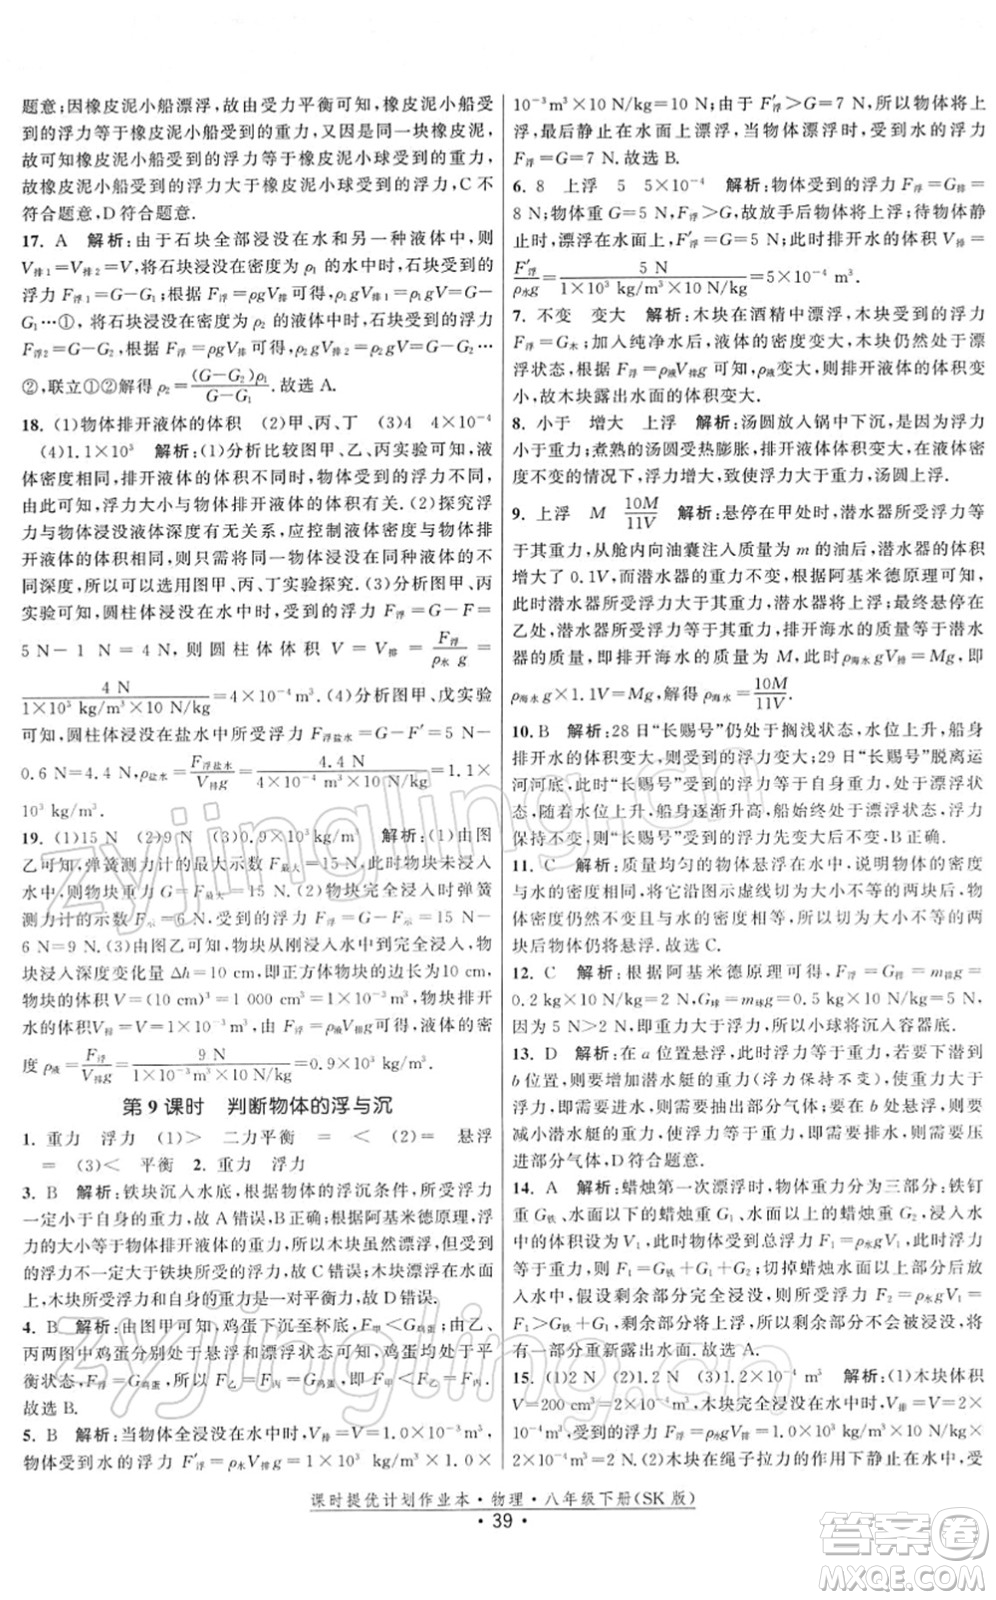 题意;因橡皮泥小船漂浮,故由受力平衡可知,橡皮泥小船受
到的浮力等于橡皮泥小船受到的重力,又因是同一块橡皮泥,
故可知橡皮泥小船受到的浮力等于橡皮泥小球受到的重力,
故橡皮泥小船受到的浮力大于橡皮泥小球受到的浮力,C 不
符合题意,D 符合题意.
17. A 解析:由于石块全部浸没在水和另一种液体中,则
V排1=V排2=V石,将石块浸没在密度为 ρ1 的水中时,石块受到的
浮力 F浮1=G-G1;根据 F浮=ρgV排 可得,ρ1gV石=G-
G1…①,将石块浸没在密度为 ρ2 的液体中时,石块受到的浮力
F浮2=G-G2;根据 F浮=ρgV排 可得,ρ2gV石=G-G2…
②,联立①②解得 ρ2=(G-G2)ρ1/(G-G1).故选 A.
18. (1)物体排开液体的体积 (2)甲、丙、丁 (3)4 4×10⁻⁴
(4)1.1×10³ 解析:(1)分析比较图甲、乙、丙实验可知,液
体密度相同,排开液体的体积不同时,物体受到的浮力不同,
由此可知,浮力大小与物体排开液体的体积有关.(2)探究浮
力与物体浸没液体深度有无关系,应控制液体密度与物体排
开液体的体积相同,则只需将同一物体浸没在同种液体的不
同深度,所以可以选用图甲、丙、丁实验探究.(3)分析图甲、丙
实验可知,圆柱体浸没在水中时,受到的浮力 F浮=G-F=
5 N-1 N=4 N,则圆柱体体积 V=V排=F浮/(ρ水g)=
4 N/(1×10³ kg/m³×10 N/kg)=4×10⁻⁴ m³.(4)分析图甲、戊实验
可知,圆柱体浸没在盐水中所受浮力 F浮盐水=G-F′=5 N-
0.6 N=4.4 N,ρ盐水=F浮盐水/(V排g)=4.4 N/(4×10⁻⁴ m³×10 N/kg)=1.1×
10³ kg/m³.
19. (1)15 N (2)9 N (3)0.9×10³ kg/m³ 解析:(1)由图
乙可知,弹簧测力计的最大示数 F最大=15 N,此时物块未浸入
水中,则物块重力 G=F最大=15 N.(2)物块完全浸入时弹簧
测力计的示数 F示=6 N,受到的浮力 F浮=G-F示=15 N-
6 N=9 N.(3)由图乙可知,物块从刚浸入水中到完全浸入,物
块浸入深度变化量 Δh=10 cm,即正方体物块边长为 10 cm,
物块的体积 V=(10 cm)³=1 000 cm³=1×10⁻³ m³,物块排开
水的体积V排=V=1×10⁻³ m³,由F浮=ρ液gV排 可得,液体的密
度 ρ液=F浮/(V排g)=9 N/(1×10⁻³ m³×10 N/kg)=0.9×10³ kg/m³.
第 9 课时 判断物体的浮与沉
1. 重力 浮力 (1)> 二力平衡 = < (2)= 悬浮
= (3)< 平衡 2. 重力 浮力
3. B 解析:铁块沉入水底,根据物体的浮沉条件,所受浮力
一定小于自身的重力,故 A 错误,B 正确;根据阿基米德原理,浮
力的大小等于物体排开液体的重力,所以木块虽然漂浮,但受到
的浮力不一定大于铁块所受的浮力,故 C 错误;木块漂浮在水面
上,木块所受浮力和自身的重力是一对平衡力,故 D 错误.
4. B 解析:由图甲可知,鸡蛋下沉至杯底,F甲<G鸡蛋;由乙、
丙两图中鸡蛋分别处于悬浮和漂浮状态可知,鸡蛋均处于平
衡状态,故 F乙=F丙=G鸡蛋,则浮力关系为 F甲<F乙=F丙.
故选 B.
5. B 解析:当物体完全浸没在水中时,V排=V=1.0×10⁻³ m³,
物体受到的水的浮力 F浮=ρ水gV排=1.0×10³ kg/m³×1.0×
10⁻³m³×10 N/kg=10 N;由于 F′浮>G=7 N,所以物体将上
浮,最后静止在水面上漂浮,当物体漂浮时,受到的水的浮力
F浮=G=7 N.故选 B.
6. 8 上浮 5 5×10⁻⁴ 解析:物体受到的浮力 F浮=G排=
8 N;物体重 G=5 N,F浮>G,故放手后物体将上浮;待物体
静止时,漂浮在水面上,F′浮=G=5 N,此时排开水的体积 V排=
F′浮/(ρ水g)=5 N/(1×10³ kg/m³×10 N/kg)=5×10⁻⁴ m³.
7. 不变 变大 解析:木块在酒精中漂浮,木块受到的浮力
F浮=G木;加入纯净水后,液体的密度变大,木块仍然处于漂
浮状态,根据 F浮=ρ液gV排 可知,木块排开液体的体积变
小,故木块露出水面的体积变大.
8. 小于 增大 上浮 解析:汤圆放入锅中下沉,是因为浮力
小于重力;煮熟的汤圆受热膨胀,排开液体体积变大,在液体密
度不变的情况下,浮力增大,致使浮力大于重力,汤圆上浮.
9. 上浮 M 10M/11V 解析:悬停在甲处时,潜水器所受浮力等
于其重力,从舱内向油囊注入质量为 m 的油后,潜水器的体积
增大了 0.1V,而潜水器的重力不变,根据阿基米德原理可知,
此时潜水器所受浮力大于其重力,潜水器将上浮;最终悬停在
乙处,潜水器所受浮力等于其重力,排开海水的质量等于潜水
器的质量,即排开海水的质量为 M,此时 ρ海水gV排=Mg,即
ρ海水g×1.1V=Mg,解得 ρ海水=10M/11V.
10. B 解析:28 日“长赐号”仍处于搁浅状态,水位上升,船身
排开水的体积变大,则受到的浮力变大;29 日“长赐号”脱离运
河河底,此时“长赐号”受到的浮力等于自身重力,处于漂浮状
态,随着水位上升,船身逐渐升高,船始终处于漂浮状态,浮力
保持不变,则“长赐号”受到的浮力先变大后不变.B 正确.
11. C 解析:质量均匀的物体悬浮在水中,说明物体的密度
与水的密度相等;将它沿图示虚线切为大小不等的两块后,物
体密度仍然不变且与水的密度相等,故沿虚线切为大小不等的两
块后物体仍将悬浮.故选 C.
12. C 解析:根据阿基米德原理可知,F浮=G排=m排g=
0.2 kg×10 N/kg=2 N,G球=m球g=0.5 kg×10 N/kg=5 N,
因为 5 N>2 N,即重力大于浮力,所以小球将沉入容器底.
13. D 解析:在 a 位置悬浮,此时浮力等于重力,若要下潜到
b 位置,应使重力大于潜水艇的浮力(浮力保持不变),则需要
增加水舱中水的质量,则需要抽出部分气体;要在 b 处悬浮,要
减小潜水艇的重力,使浮力等于重力,需要排水,则需要压
进部分气体,D 符合题意.
14. A 解析:蜡烛第一次漂浮时,物体重力分为三部分:铁钉
重 G铁、水面以下的蜡烛重 G1、水面以上的蜡烛重 G2,浸入水中
的体积设为 V,此时物体受到总浮力 F1=ρ水gV,由于物体漂
浮,所以 F1=G铁+G1+G2;切掉蜡烛水面以上的部分后,重力
变为 G铁+G1,假设剩余部分完全浸没,浮力 F2=ρ水gV=
F1>G铁+G1,剩余部分所受浮力大于重力,剩余部分将上浮,将
有一部分重新露出水面.故选 A.
15. (1)2 N (2)1.2 N (3)1.2×10⁻⁴ m³ 解析:(1)木块体积
V=200 cm³=2×10⁻⁴m³,木块浸没在水中,V排=V=2×
10⁻⁴m³,则木块受到的浮力 F浮=ρ水gV排=1.0×10³ kg/m³×
2×10⁻⁴ m³×10 N/kg=2 N.(2)木块在绳子拉力的作用下,受
课时提优计划作业本·物理·八年级下册(SK 版)
· 39 ·
zyjingling.cn
zyjingling.cn
答案圈
MXQE.COM